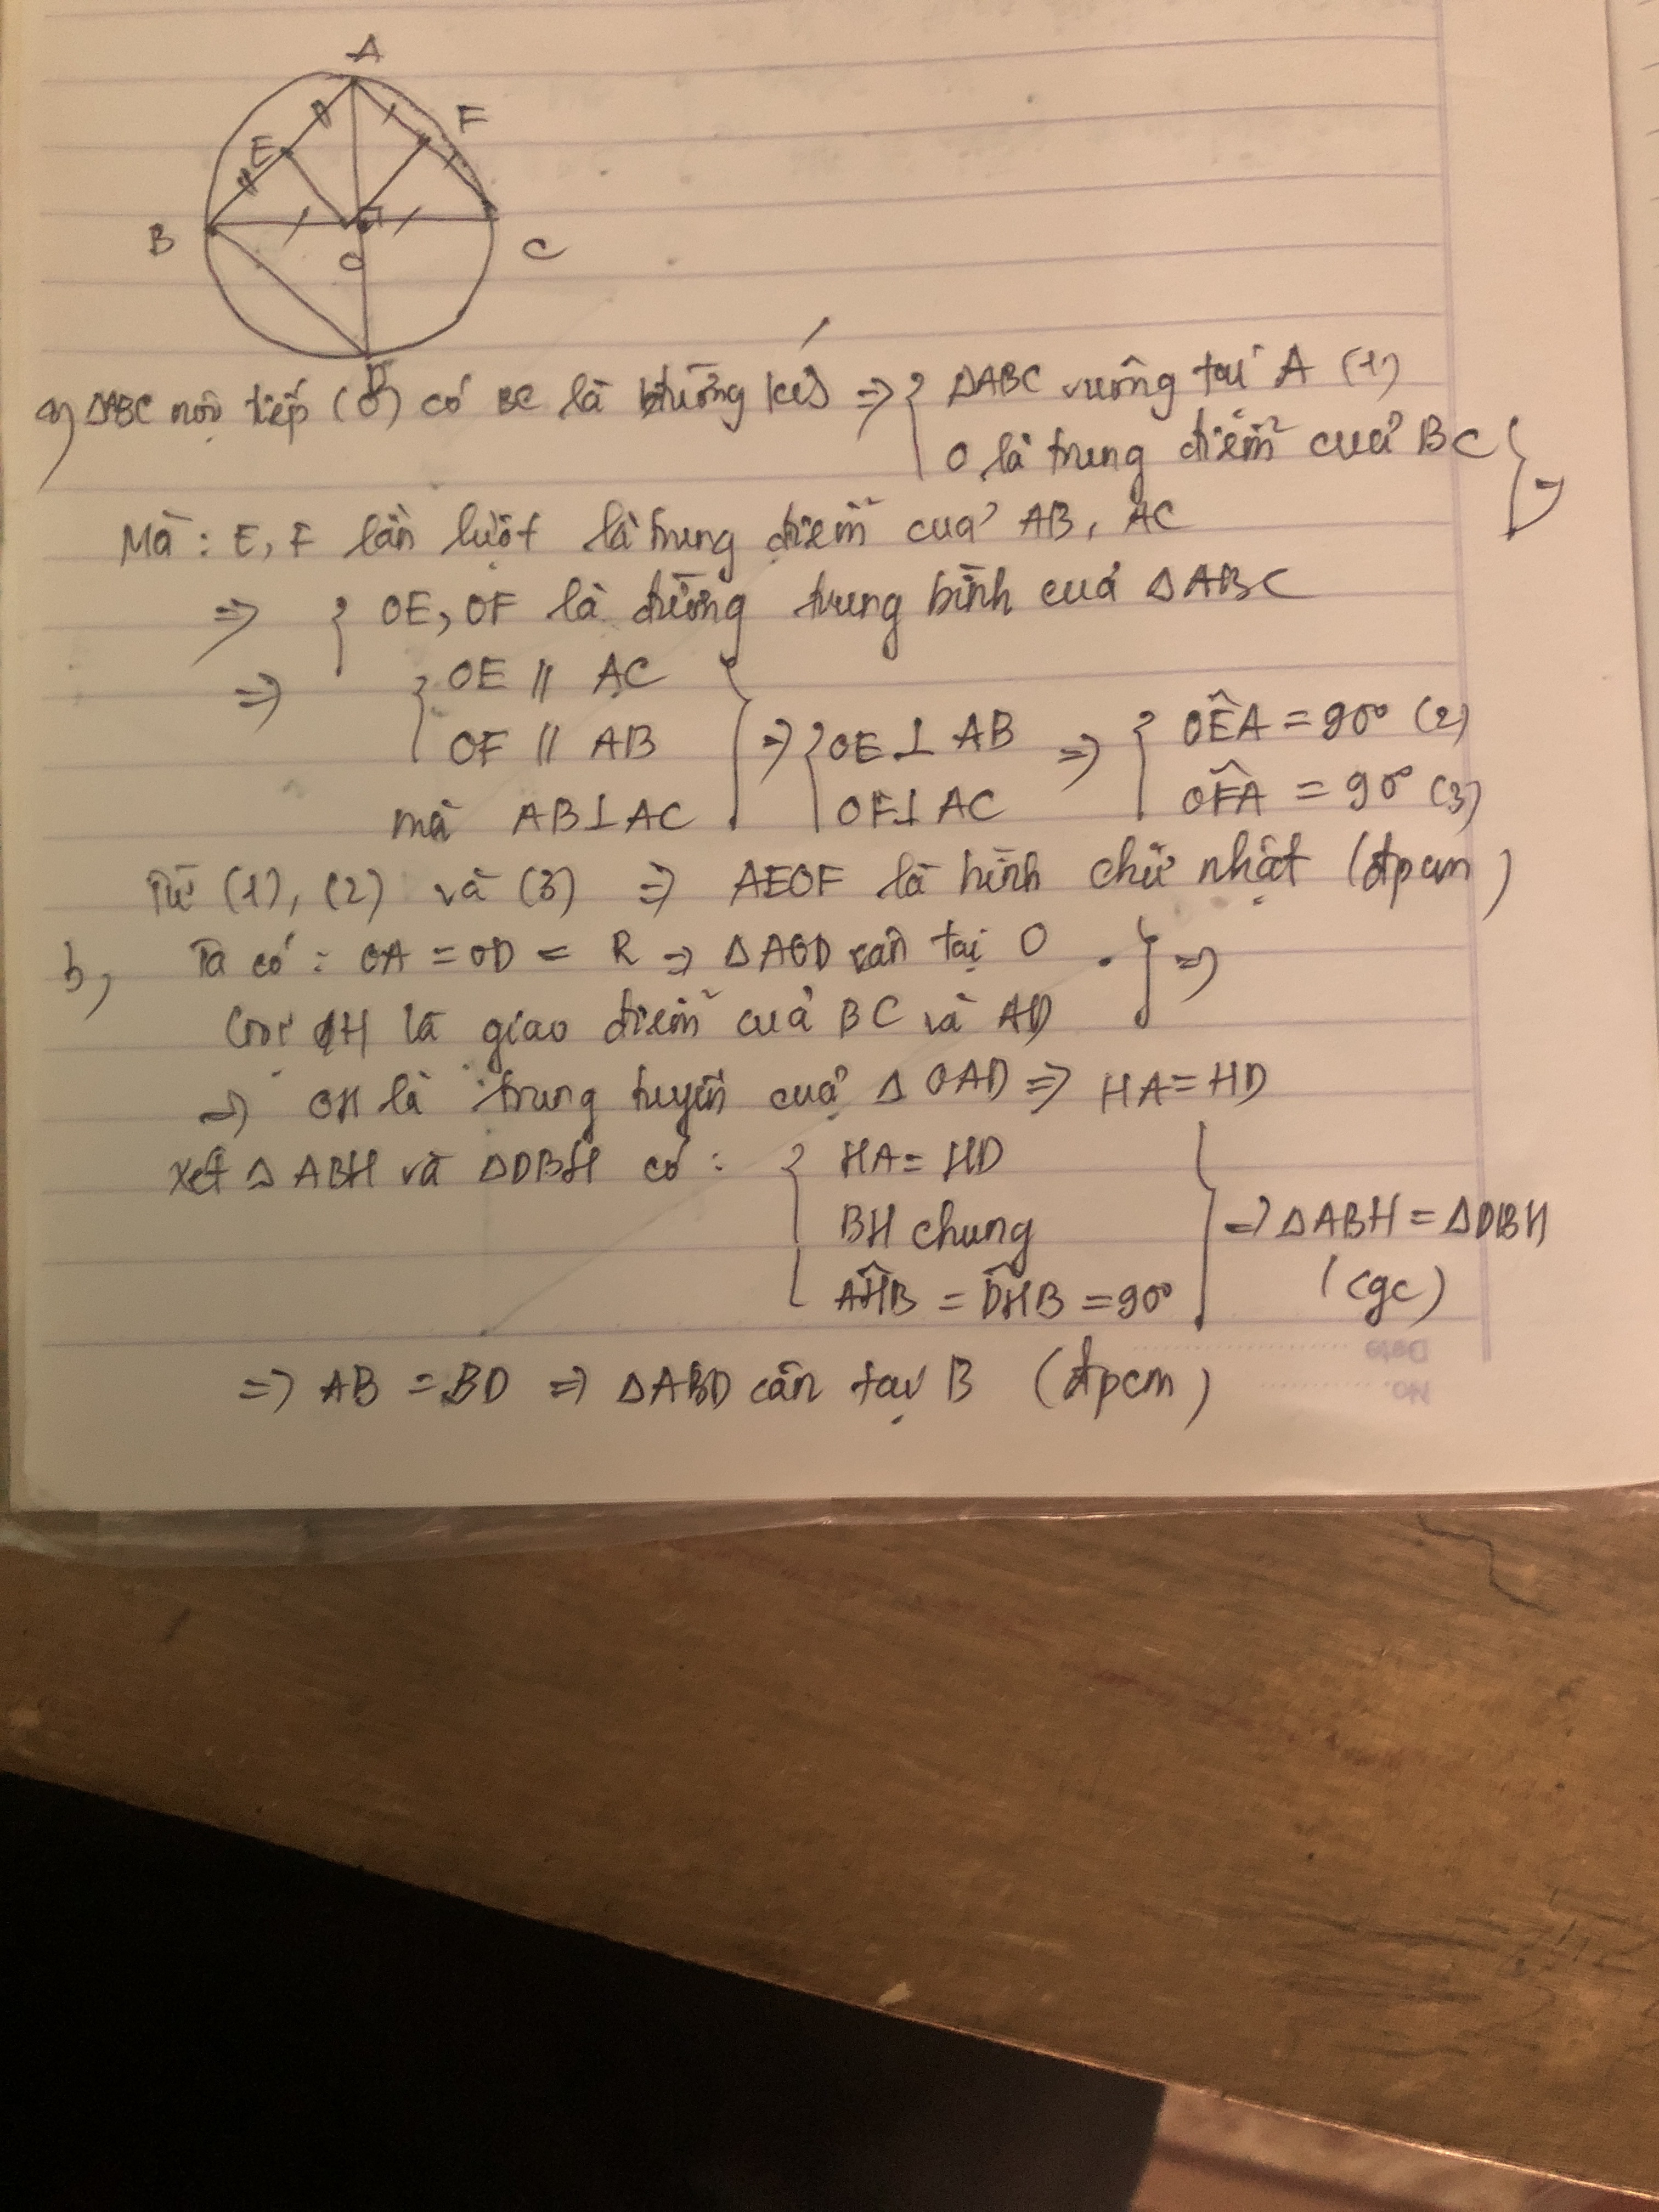 A
F
E
B
O
C
D
a, ΔABC nội tiếp (O) có BC là đường kính => { ΔABC vuông tại A (1)
O là trung điểm của BC } =>
Mà : E, F lần lượt là trung điểm của AB, AC
=> { OE, OF là đường trung bình của ΔABC
=> { OE // AC
OF // AB } => { OE ⊥ AB => { OÊA = 90° (2)
mà AB ⊥ AC OF ⊥ AC OF̂A = 90° (3)
Từ (1), (2) và (3) => AEOF là hình chữ nhật (đpcm)
b, Ta có : OA = OD = R => ΔAOD cân tại O . } =>
Gọi H là giao điểm của BC và AD
=> OH là trung tuyến của Δ OAD => HA = HD
Xét Δ ABH và ΔDBH có : { HA = HD
BH chung } => ΔABH = ΔDBH
AĤB = DĤB = 90° (cgc)
=> AB = BD => ΔABD cân tại B (đpcm)
Date
No.